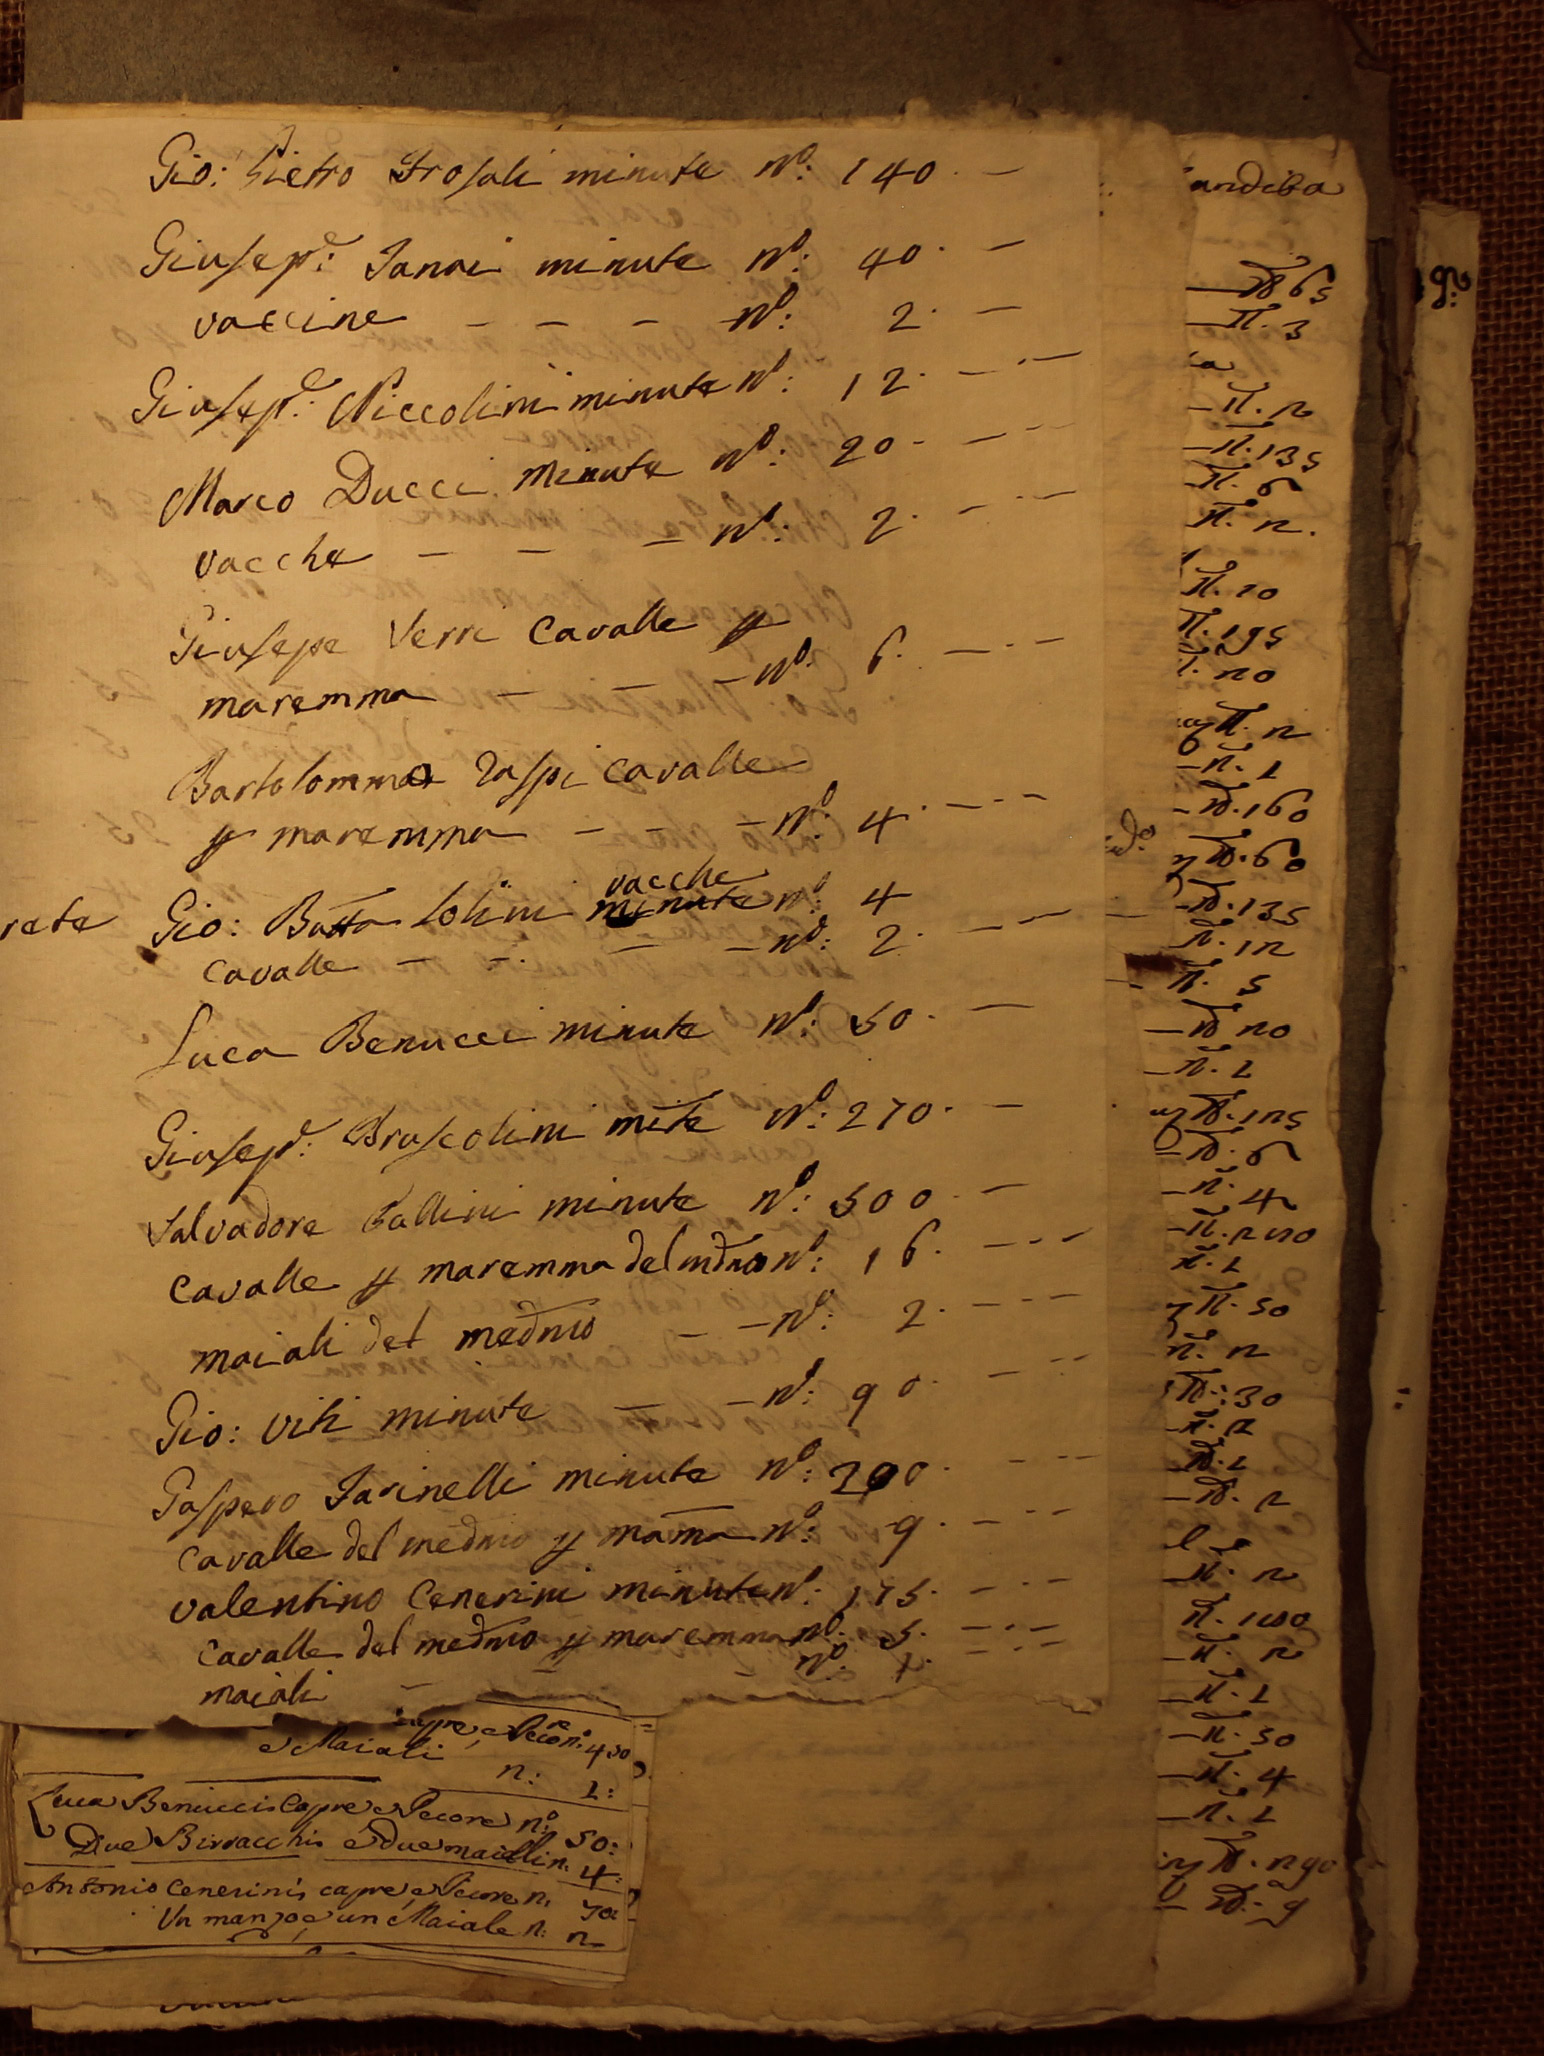 Gio: Pietro Frosali minute Nº: 140. —
Giusep.e: Nanni minute Nº: 40. —
vaccine — — — Nº: 2. —
Giusep.e: Niccolini minute Nº: 12. — . —
Marco Ducci minute Nº: 20 — . —
vacche — — — Nº: 2. — . —
Giusepe Verri Cavalle p
maremma — — — Nº. 6. — . —
Bartolommeo Raspi cavalle
p maremma — — — Nº: 4. — . —
vacche
rete Gio: Batta Lolini minute Nº: 4
cavalle — — . — — Nº: 2. — . —
Luca Benucci minute Nº: 50. —
Giusep.e: Bruscolini mite Nº: 270. —
Salvadore Ballini minute Nº: 500. —
cavalle p maremma del mdmo nº: 16. — . —
maiali del medmo — — Nº: 2. — . —
Gio: Viti minute — — Nº: 90. — . —
Gaspero Farinelli minute Nº: 200. — . —
cavalle del medmo p mama Nº: 9. — . —
Valentino Cenerini minute nº: 175. — . —
cavalle del medmo p maremma Nº. 5. — . —
maiali — — — Nº. 1. — . —
Capre, e Pecore n: 450
e Maiali n: 1:
Luca Benucci Capre, e Pecore nº: 50:
Due Birracchi e Due maialli n. 4:
Antonio Cenerini capre, e Pecore n. 70:
Un manzo, e un Maiale n: 2
andita
— N 65
— N. 3
ca
— N. 2
— N. 135
— N. 6
N. 2.
N. 20
N. 195
N. 20
N. 2
— N. 1
— N. 160
N. 60
— N. 135
N. 12
N. 5
— N 20
— N. 1
N. 125
— N. 6
— N. 4
— N. 200
N. 1
N. 50
N. 2
N. 30
— N. 2
— N. 1
— N. 2
— N. 2
N. 100
— N. 2
— N. 1
— N. 50
— N. 4
— N. 1
N. 290
— N. 9